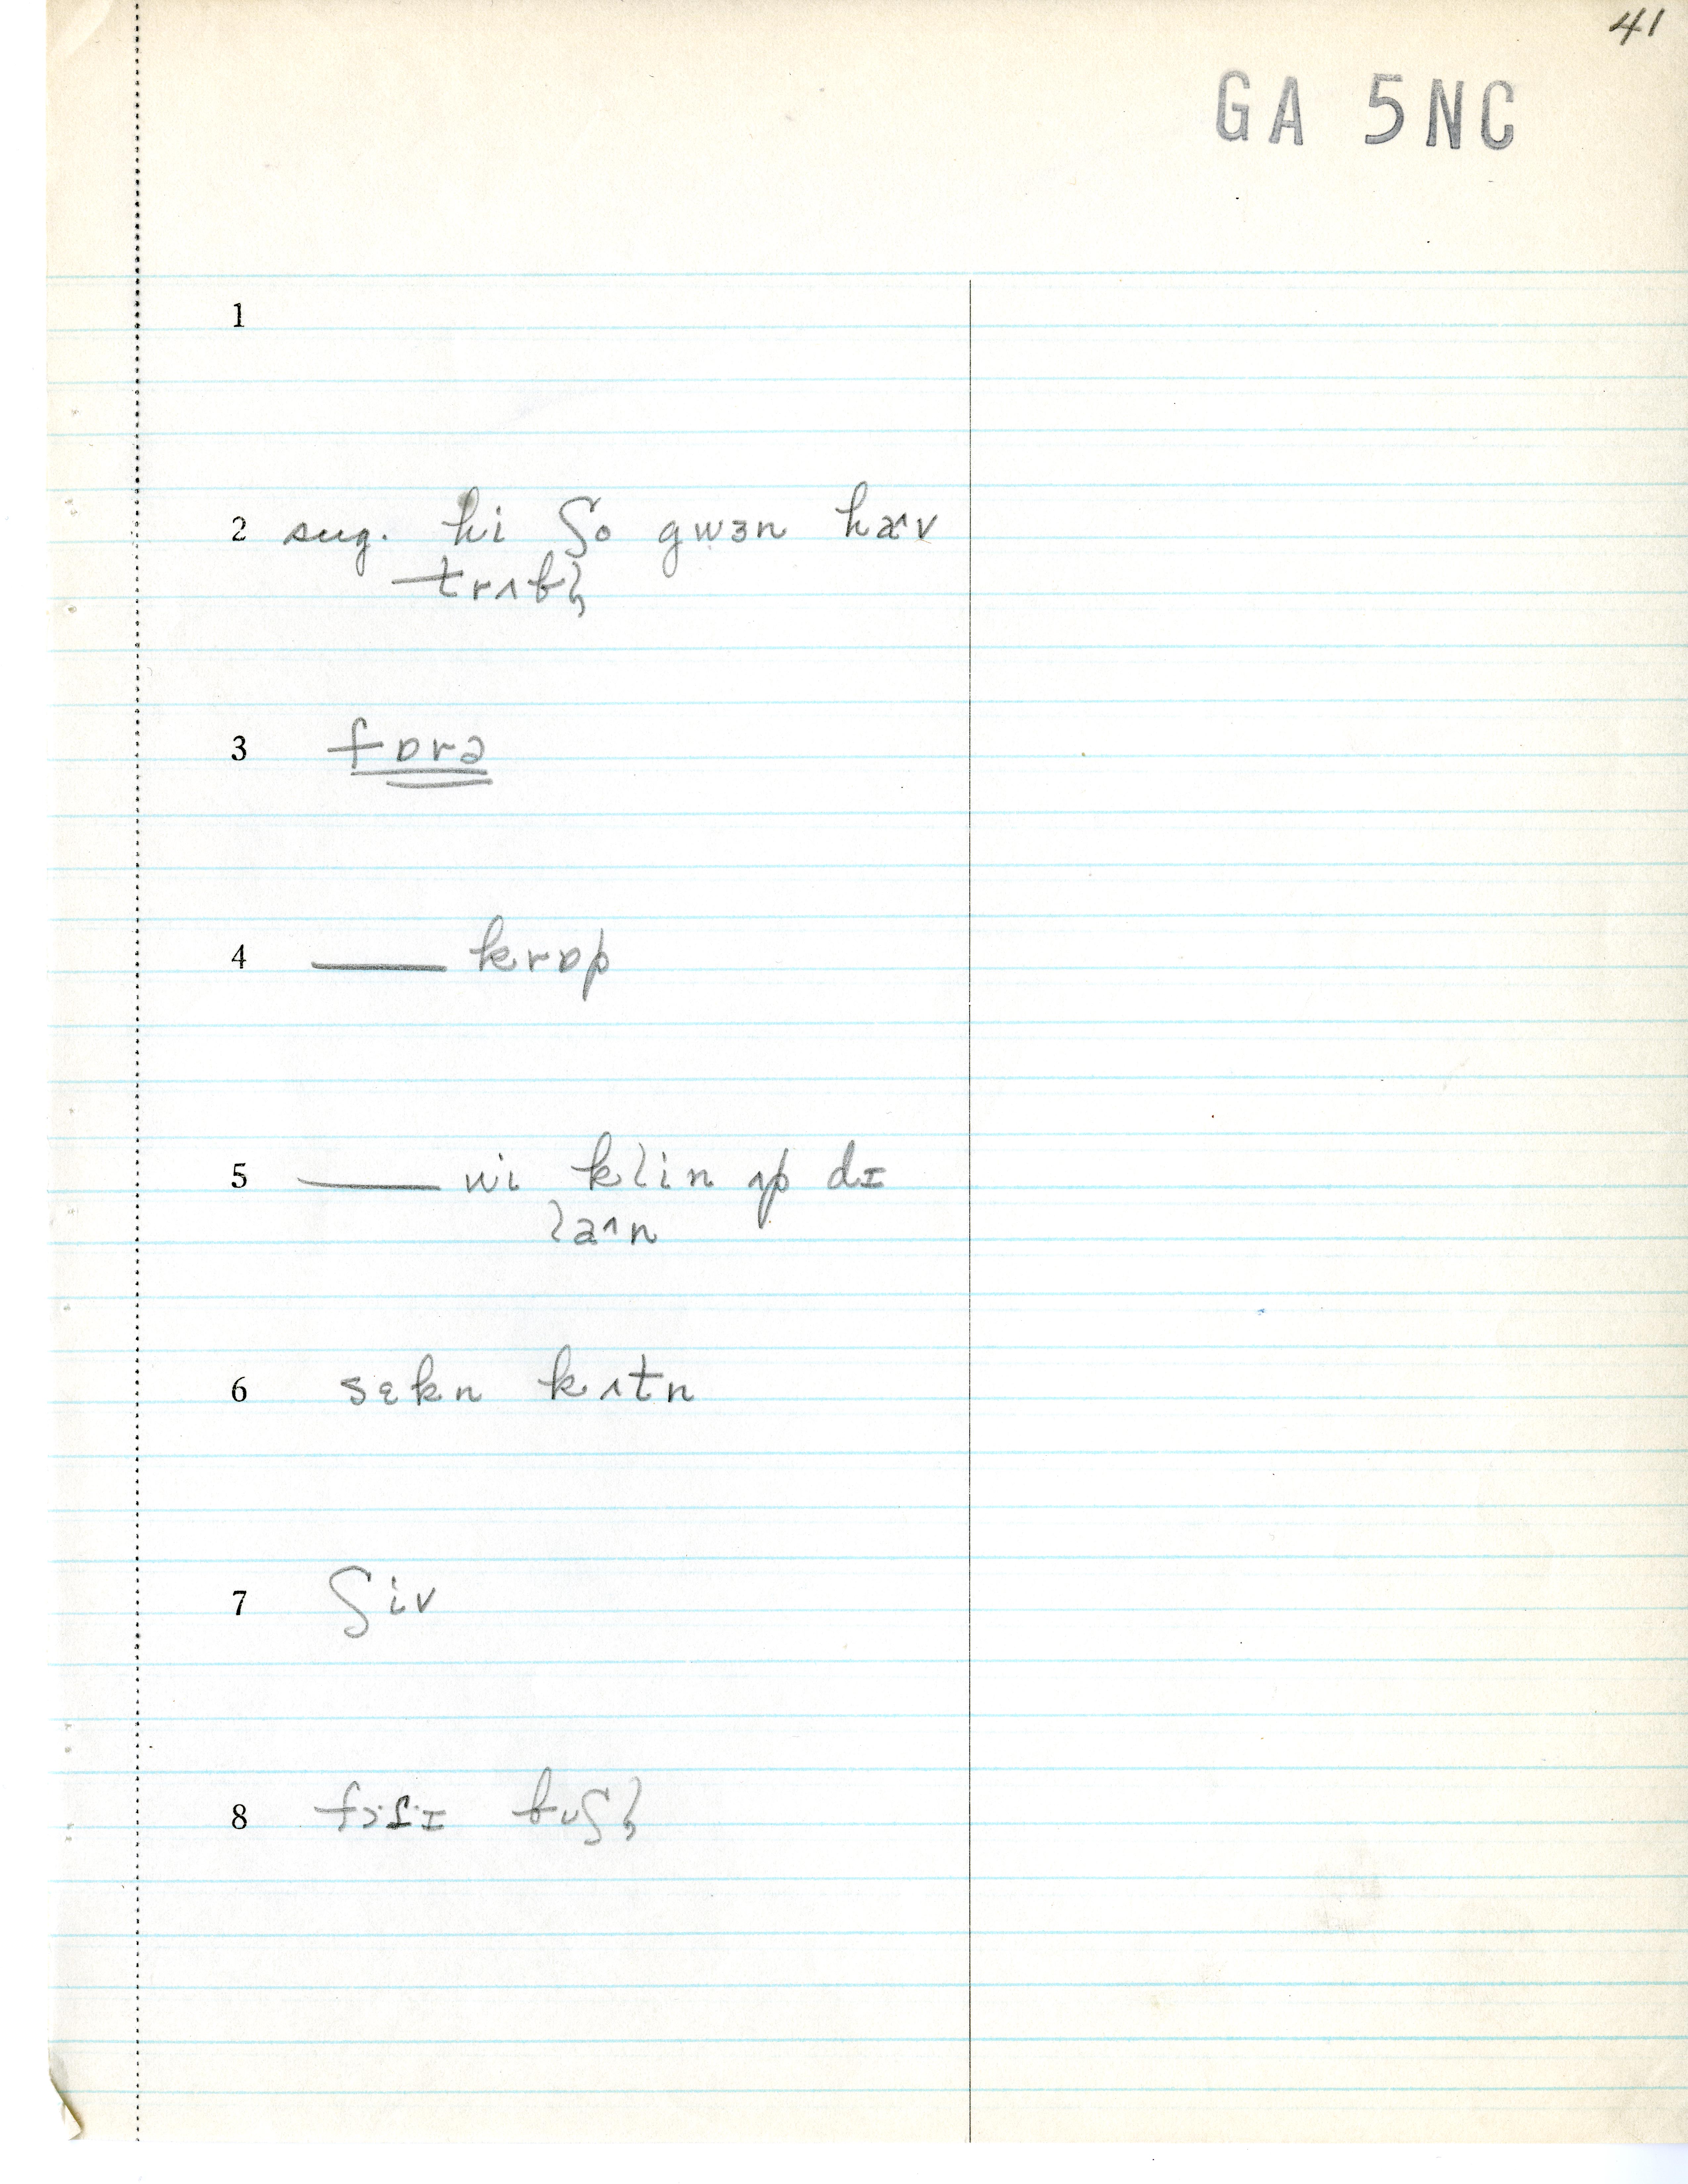 41
GA 5NC
1
2 sug. hi ʃo gwɜn hæˑv
trʌbl̩
3 fɒrə
4 —— krɒp
5 —— wi klin ʌp dɪ
laˑn
6 sɛkn kʌtn
7 ʃiv
8 buʃl̩